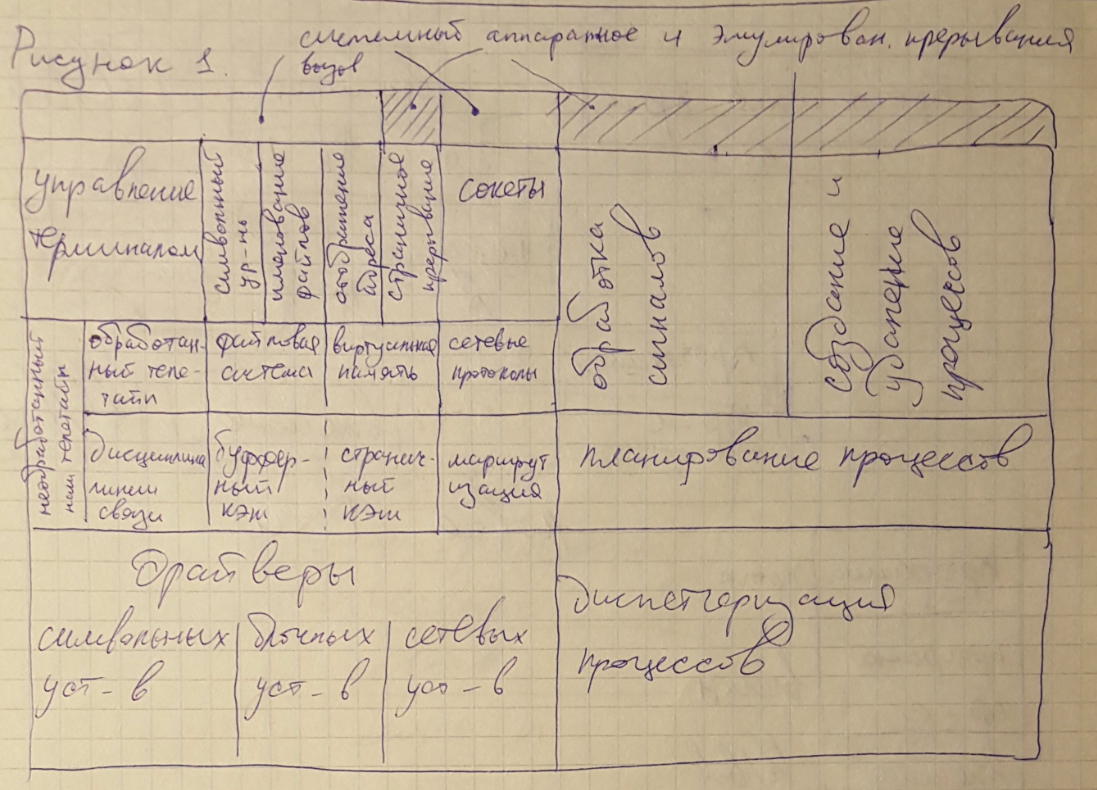 Рисунок 1.
системный аппаратное и эмулирован. прерывания
вызов
управление
терминалом
символьный
ур-нь
именование
файлов
отображение
адреса
страничное
прерывание
сокеты
обработка
сигналов
создание и
удаление
процессов
необработанный
телетайп
обработан-
ный теле-
тайп
файловая
система
виртуальная
память
сетевые
протоколы
дисциплина
линии
связи
буффер-
ный
кэш
странич-
ный
кэш
маршрут
изация
планирование процессов
Драйверы
символьных
уст-в
блочных
уст-в
сетевых
уст-в
диспетчеризация
процессов